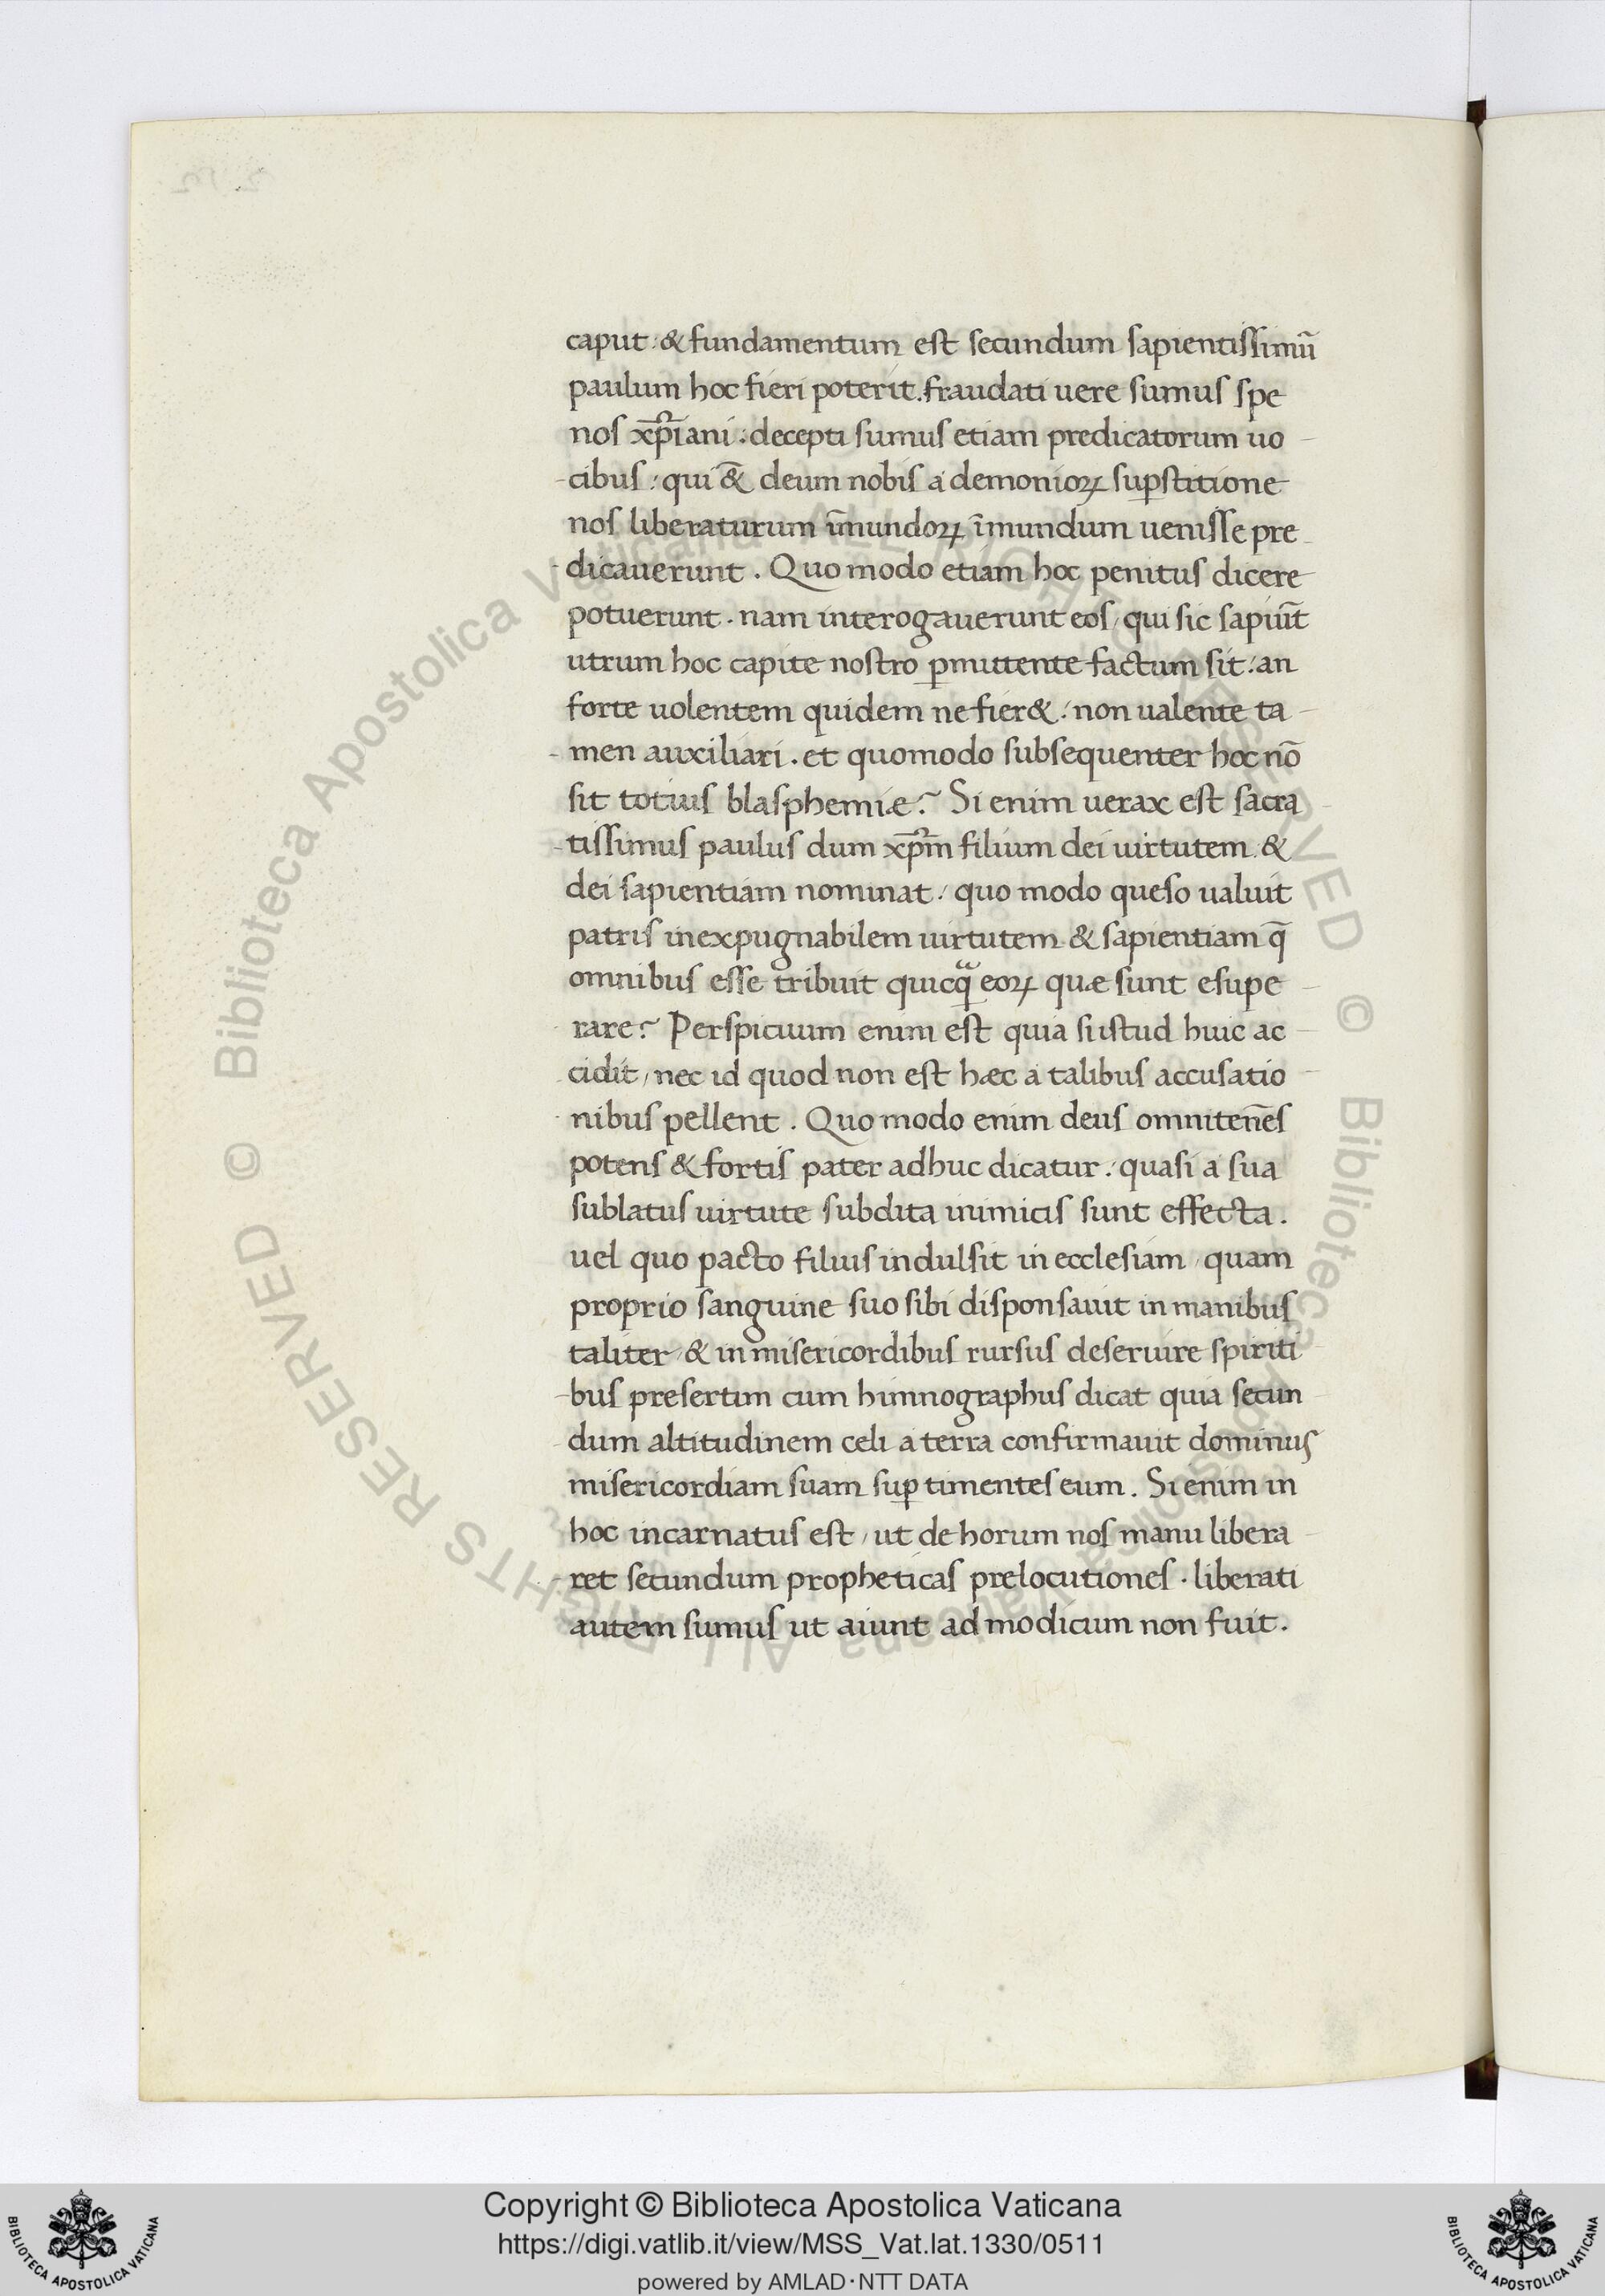 caput: & fundamentum est secundum sapientissimū
paulum hoc fieri poterit. fraudati uere sumus spe
nos xp̄iani: decepti sumus etiam predicatorum uo
cibus: qui & deum nobis a demonioꝝ suꝑstitione
nos liberaturum īmundoꝝ īmundum uenisse pre
dicauerunt. Quo modo etiam hoc penitus dicere
potuerunt. nam interogauerunt eos, qui sic sapiūt
utrum hoc capite nostro ꝑmittente factum sit: an
forte uolentem quidem ne fier&: non ualente ta
men auxiliari. et quomodo subsequenter hoc nō
sit totius blasphemiæ? Si enim uerax est sacra
tissimus paulus dum xp̄m filium dei uirtutem &
dei sapientiam nominat: quo modo queso ualuit
patris inexpugnabilem uirtutem & sapientiam q̄
omnibus esse tribuit quicqᵃ eoꝝ quæ sunt esupe
rare? Perspicuum enim est quia si istud huic ac
cidit, nec id quod non est hæc a talibus accusatio
nibus pellent. Quo modo enim deus omniten̄es
potens & fortis pater adhuc dicatur: quasi a sua
sublatus uirtute subdita inimicis sunt effecta.
uel quo pacto filius indulsit in ecclesiam, quam
proprio sanguine suo sibi disponsauit in manibus
taliter & inmisericordibus rursus deseruire spiriti
bus presertim cum himnographus dicat quia secun
dum altitudinem celi a terra confirmauit dominus
misericordiam suam suꝑ timentes eum. Si enim in
hoc incarnatus est, ut de horum nos manu libera
ret secundum propheticas prelocutiones. liberati
autem sumus ut aiunt ad modicum non fuit.
© Biblioteca Apostolica Vaticana ALL RIGHTS RESERVED © Biblioteca Apostolica Vaticana ALL RIGHTS RESERVED
Copyright © Biblioteca Apostolica Vaticana
https://digi.vatlib.it/view/MSS_Vat.lat.1330/0511
powered by AMLAD·NTT DATA
BIBLIOTECA APOSTOLICA VATICANA
BIBLIOTECA APOSTOLICA VATICANA